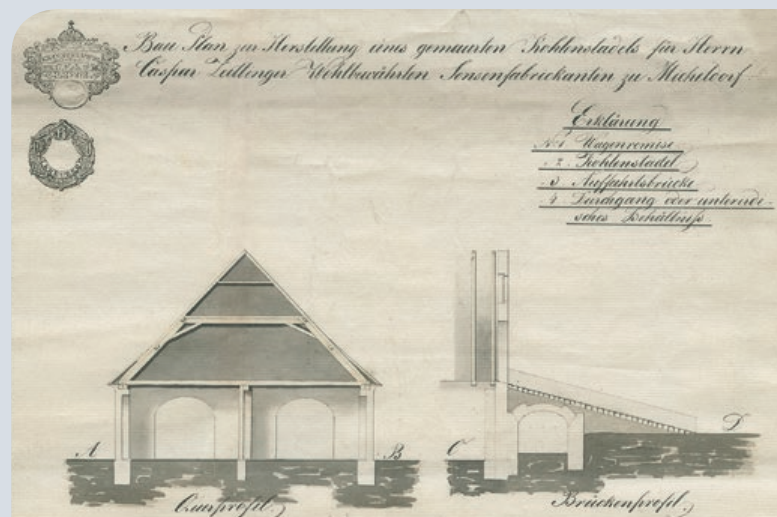 Bau Plan zur Herstellung eines gemauerten Kohlenstadels für Herrn
Caspar Zeitlinger Wohlbewährten Sensenfabrickanten zu Micheldorf
Erklärung
No. 1 Wagenremise
" 2. Kohlenstadel
" 3 Auffahrtsbrücke
" 4 Durchgang oder unterirdi-
sches Behältniß
A
B
C
D
Querprofil.
Brückenprofil.